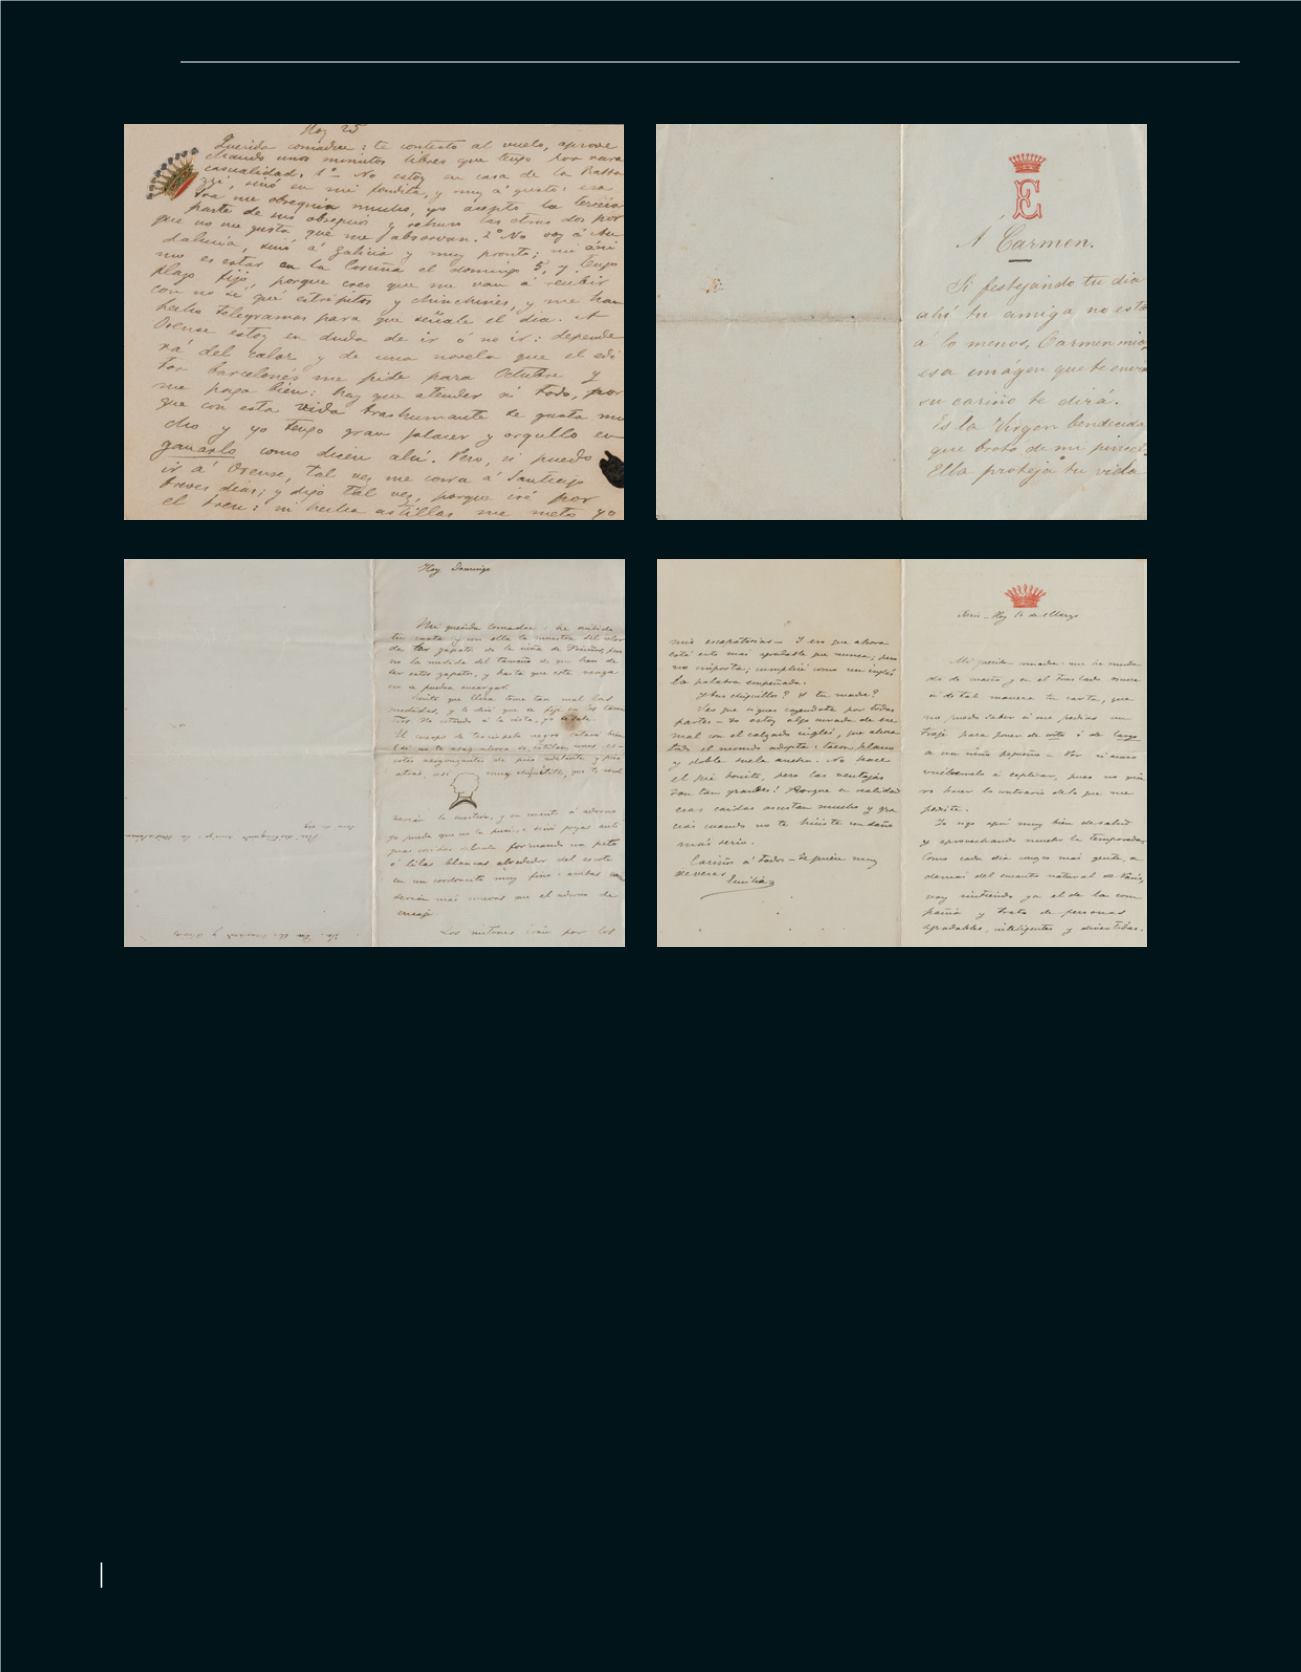 Hoy 25
Querida comadre: te contesto al vuelo, aprove
chando unos minutos libres que tengo por rara
casualidad. 1º No estoy en casa de la Ratta
zzi, sinó en mi fondita, y muy á gusto: esa
me obsequia mucho, yo acepto la tercera
parte de sus obsequios y rehuso las otras dos por
que no me gusta que me absorvan. 2º No voy á An
dalucía, sinó á Galicia y muy pronto; mi áni
mo es estar en la Coruña el domingo 5, y tengo
plazo fijo, porque creo que me van á recibir
con no sé qué estrépitos y chinchines, y me han
hecho telegramas para que señale el dia. A
Orense estoy en duda de ir ó no ir: depende
rá del calor y de una novela que el edi
tor barcelonés me pide para Octubre y
me paga bien: hay que atender á todo, por
que con esta vida trashumante se gasta mu
cho y yo tengo gran placer y orgullo en
ganarlo como dicen ahí. Pero, si puedo
ir á Orense, tal vez me corra á Santiago
breves dias; y digo tal vez, porque iré por
el tren: ni hecha astillas me meto yo
E
Á Carmen.
Si festejando tu dia
ahí tu amiga no está
á lo menos, Carmen mia,
esa imágen que te envia
su cariño te dirá.
Es la Virgen bendecida
que brotó de mi pincel.
Ella proteja tu vida
Hoy Domingo
Mi querida comadre: he recibido
tu carta y con ella la muestra del color
de los zapatos de la niña de
no la medida del tamaño de que han de
ser estos zapatos, y hasta que esta venga
no se pueden encargar.
Siento que Elisa tome tan mal las
medidas, y le diré que se fije en los
El cuerpo de terciopelo negro estará bien
atrás, así muy
ó lilas blancas alrededor del escote
en un cordoncito muy fino: ambas
serían más nuevas que el adorno de
encaje.
Los mitones irán por los
mis escapatorias. Y eso que ahora
está esto mas agradable que nunca; pero
no importa; cumpliré como un inglés
la palabra empeñada.
Y tus chiquillos? Y tu madre?
Veo que sigues cayendote por todas
partes. Yo estoy algo
mal con el calzado inglés, que ahora
todo el mundo adopta: tacon plano
y doble suela ancha. No hace
el pié bonito, pero las ventajas
son tan grandes! Porque en realidad
esas caidas asustan mucho y gra
cias cuando no te hiciste un daño
más serio.
Cariños á todos. Te quiere muy
de veras
Emilia
Paris - Hoy 1º de Marzo
Mi querida comadre: me he muda
do de cuarto y en el traslado
de tal manera tu carta, que
no puedo saber si me pedias un
traje para poner de corto ó de largo
a un niño pequeño.
vuélvemelo á explicar, pues no quie
ro hacer lo contrario de lo que me
pediste.
Yo sigo aquí muy bien de salud
y aprovechando mucho la temporada.
Como cada dia conozco más gente, a
demás del encanto natural de Paris,
voy sintiendo ya el de la com
pañia y trato de personas
agradables, inteligentes y divertidas.